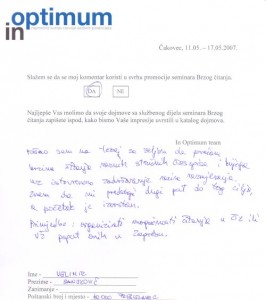 optimum
in
Čakovec, 11.05. - 17.05.2007.
Slažem se da se moj komentar koristi u svrhu promocije seminara Brzog čitanja.
DA NE
Najljepše Vas molimo da svoje dojmove sa službenog dijela seminara Brzog
čitanja zapišete ispod, kako bismo Vaše impresije uvrstili u katalog dojmova.
In Optimum team
sam na tečaj sa željom da povećam
brzinu čitanja stručnih časopisa i knjiga
uz istovremeno zadržavanje razine razumijevanja.
Znam da mi predstoji dugi put do tog cilja,
a početak je izvrstan.
Primjedbe: organizirati mogućnosti čitanja u Čk ili
VŽ poput onih u Zagrebu.
Ime -
Prezime -
Zanimanje -
Poštanski broj i mjesto -